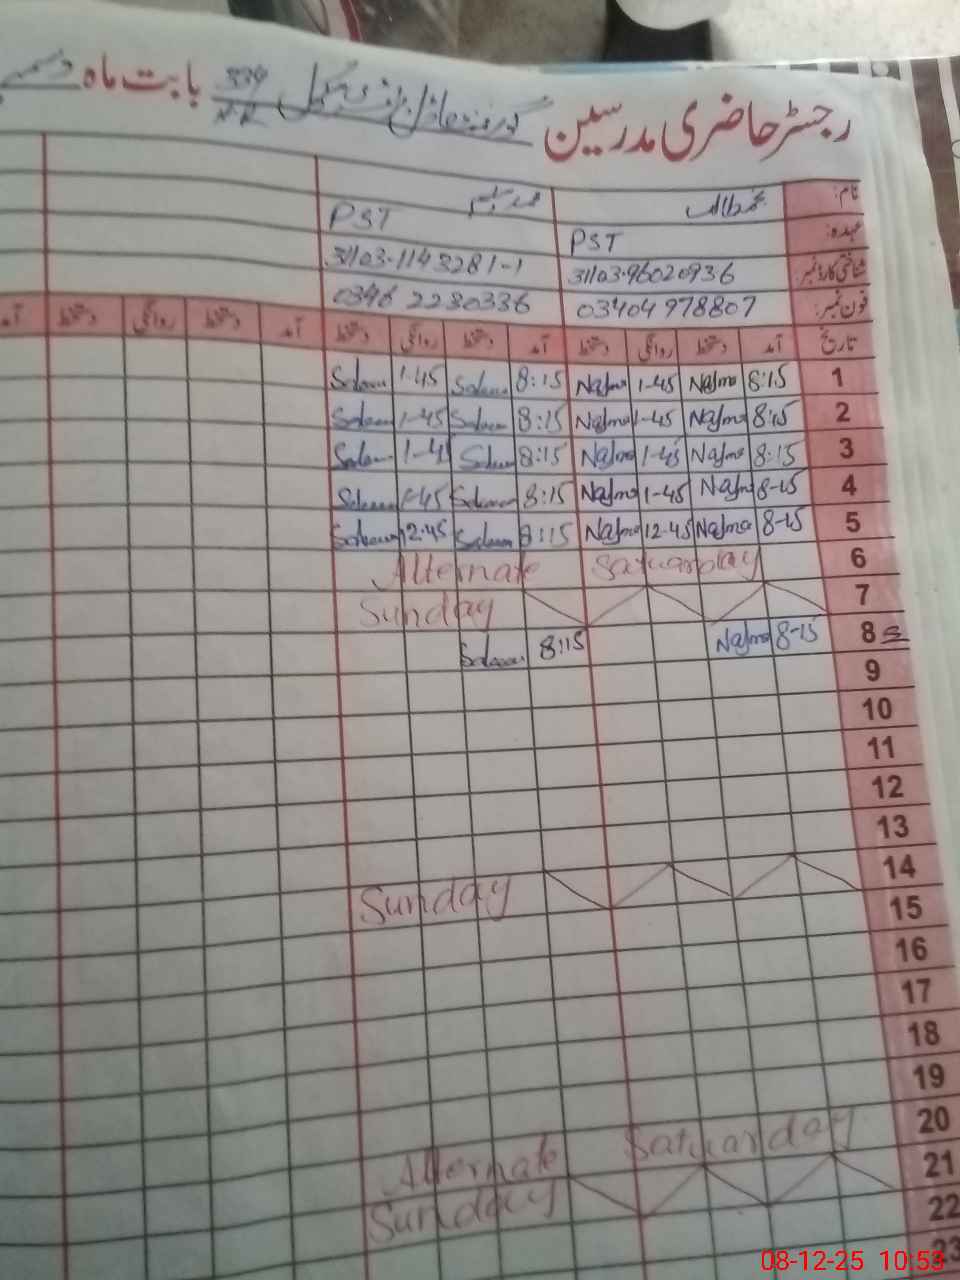 رجسٹر حاضری مدرسین 334 بابت ماہ
نام:
عہدہ: PST PST
شناختی کارڈ نمبر: 31103-96020936 31103-1143281-1
فون نمبر: 03404978807 0346 2230336
تاریخ آمد دستخط روانگی دستخط آمد دستخط روانگی دستخط آمد دستخط روانگی دستخط آمد
1 8:15 Najma 1-45 Najma 8:15 Saleem 1-45 Saleem
2 8:15 Najma 1-45 Najma 8:15 Saleem 1-45 Saleem
3 8:15 Najma 1-45 Najma 8:15 Saleem 1-45 Saleem
4 8-15 Najma 1-45 Najma 8:15 Saleem 1-45 Saleem
5 8-15 Najma 12-45 Najma 8:15 Saleem 12-45 Saleem
6 Alternate Satuarday
7 Sunday
8 8-15 Najma 8:15 Saleem
9
10
11
12
13
14 Sunday
15
16
17
18
19
20 Alternate Satuarday
21 Sunday
22
23
08-12-25 10:53